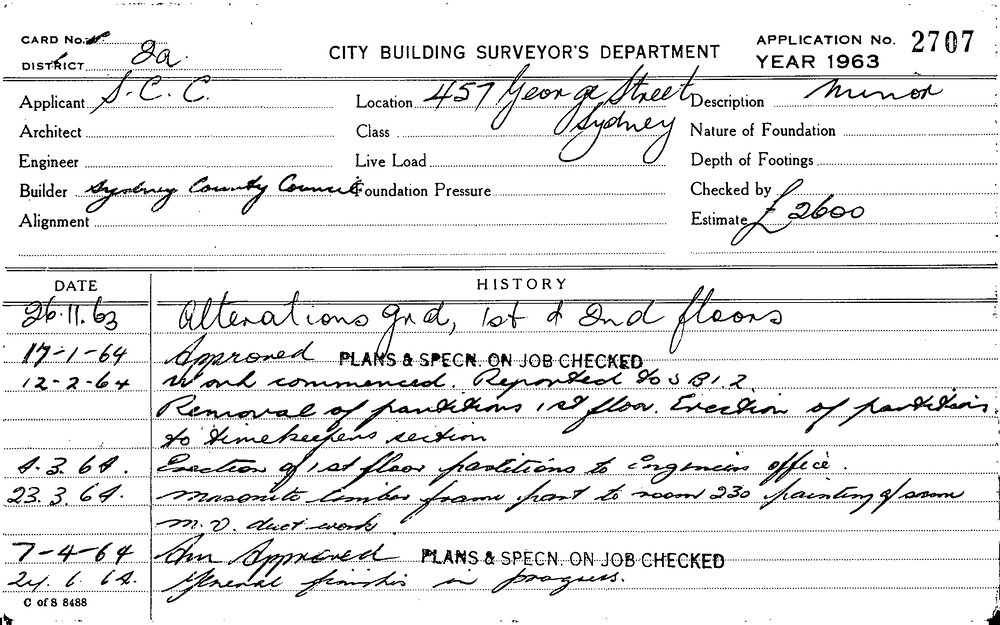 CARD No.
DISTRICT 2a.
CITY BUILDING SURVEYOR'S DEPARTMENT
APPLICATION No. 2707
YEAR 1963
Applicant S. C. C.
Location 457 George Street
Sydney
Description Minor
Architect
Class
Nature of Foundation
Engineer
Live Load
Depth of Footings
Builder Sydney County Council
Foundation Pressure
Checked by
Alignment
Estimate £2600
DATE HISTORY
26.11.63 Alterations Grd, 1st & 2nd floors
17-1-64 Approved PLANS & SPECN. ON JOB CHECKED
12-2-64 Work commenced. Reported to S B 1.2.
Removal of partitions 1st floor. Erection of partitions
to timekeepers section
4.3.64. Erection of 1st floor partitions to Engineers office.
23.3.64. Masonite timber frame part to room 230 painting of some
M.V. duct work
7-4-64 Am Approved PLANS & SPECN. ON JOB CHECKED
24.6.64. General finishes in progress.
C of S 8488